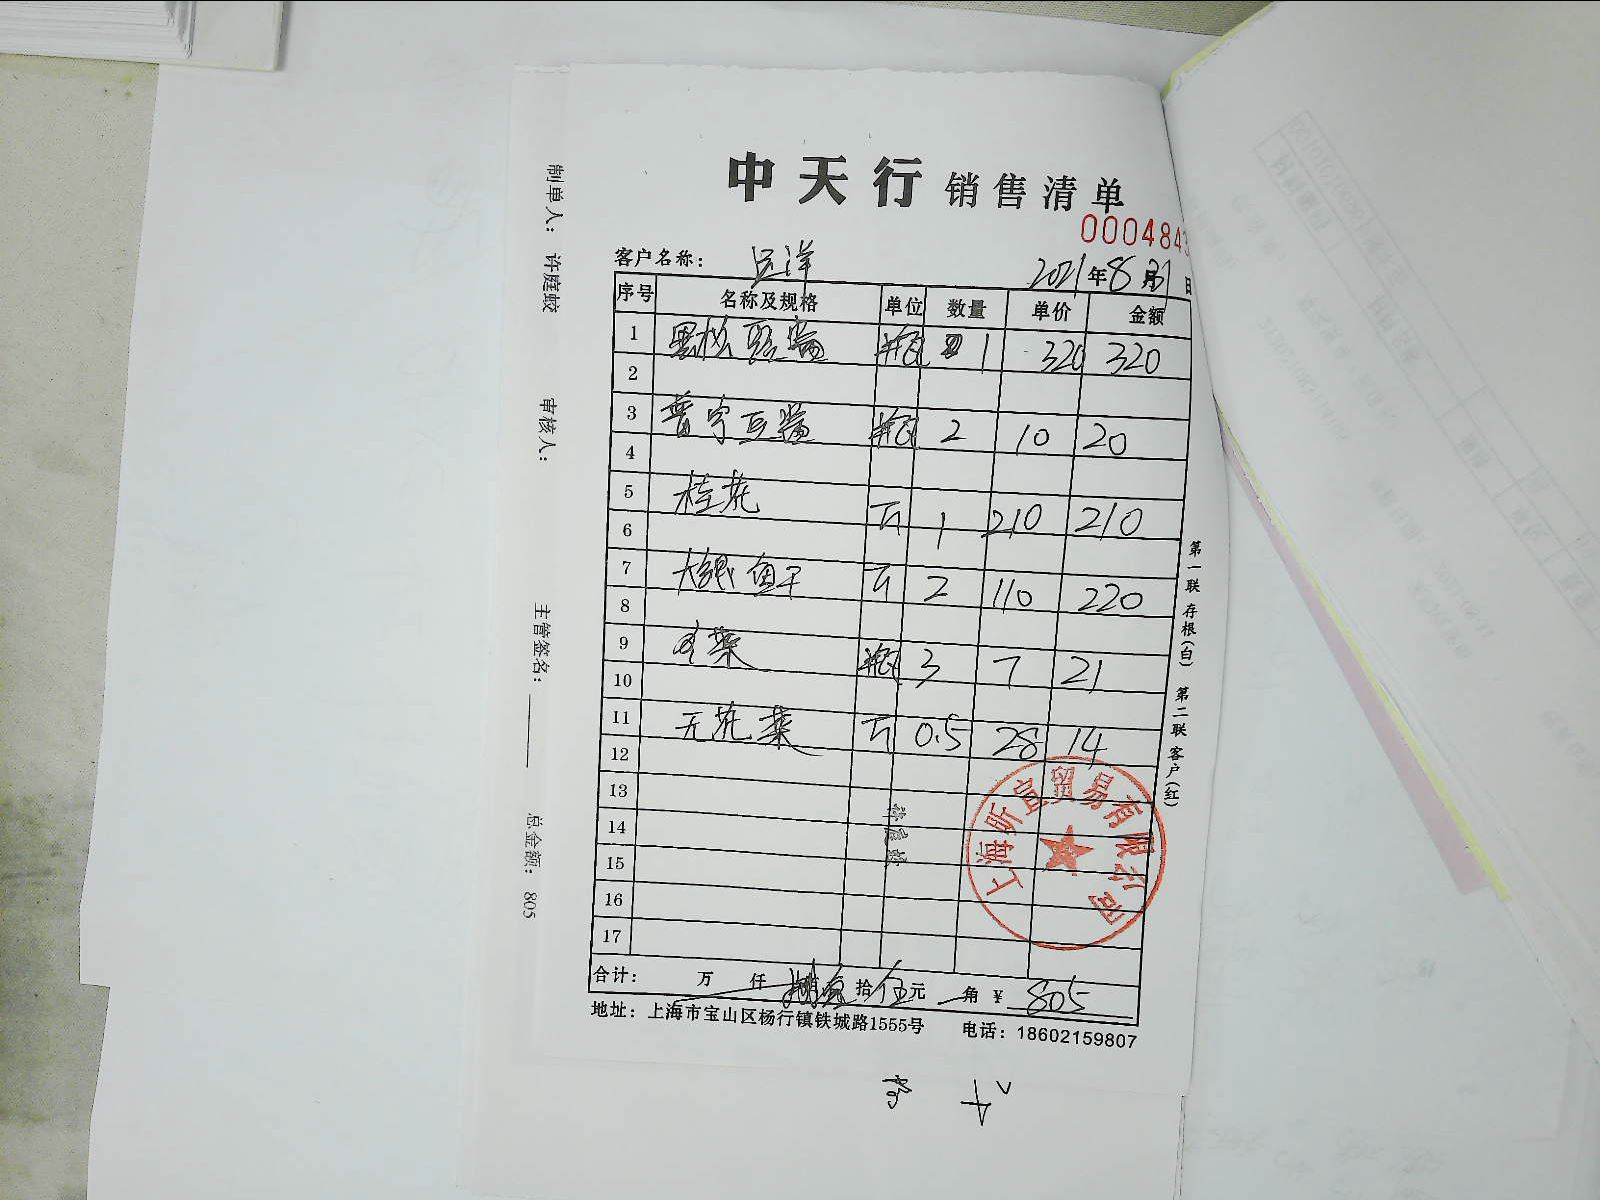 中天行 销售清单
000484
客户名称： 远洋 2021年8月31日
序号 名称及规格 单位 数量 单价 金额
1 黑松 瓶 1 320 320
2
3 普宁豆酱 瓶 2 10 20
4
5 桂花 斤 1 210 210
6
7 大 鱼干 斤 2 110 220
8
9 菜 瓶 3 7 21
10
11 无花菓 斤 0.5 28 14
12
13
14
15
16
17
合计： 万 仟 捌 拾伍元 角 ¥ 805
地址：上海市宝山区杨行镇铁城路1555号 电话：18602159807
第一联 存根（白） 第二联 客户（红）
制单人： 许庭蛟 审核人： 主管签名： 总金额：805
许庭蛟
上海昕宣贸易有限公司